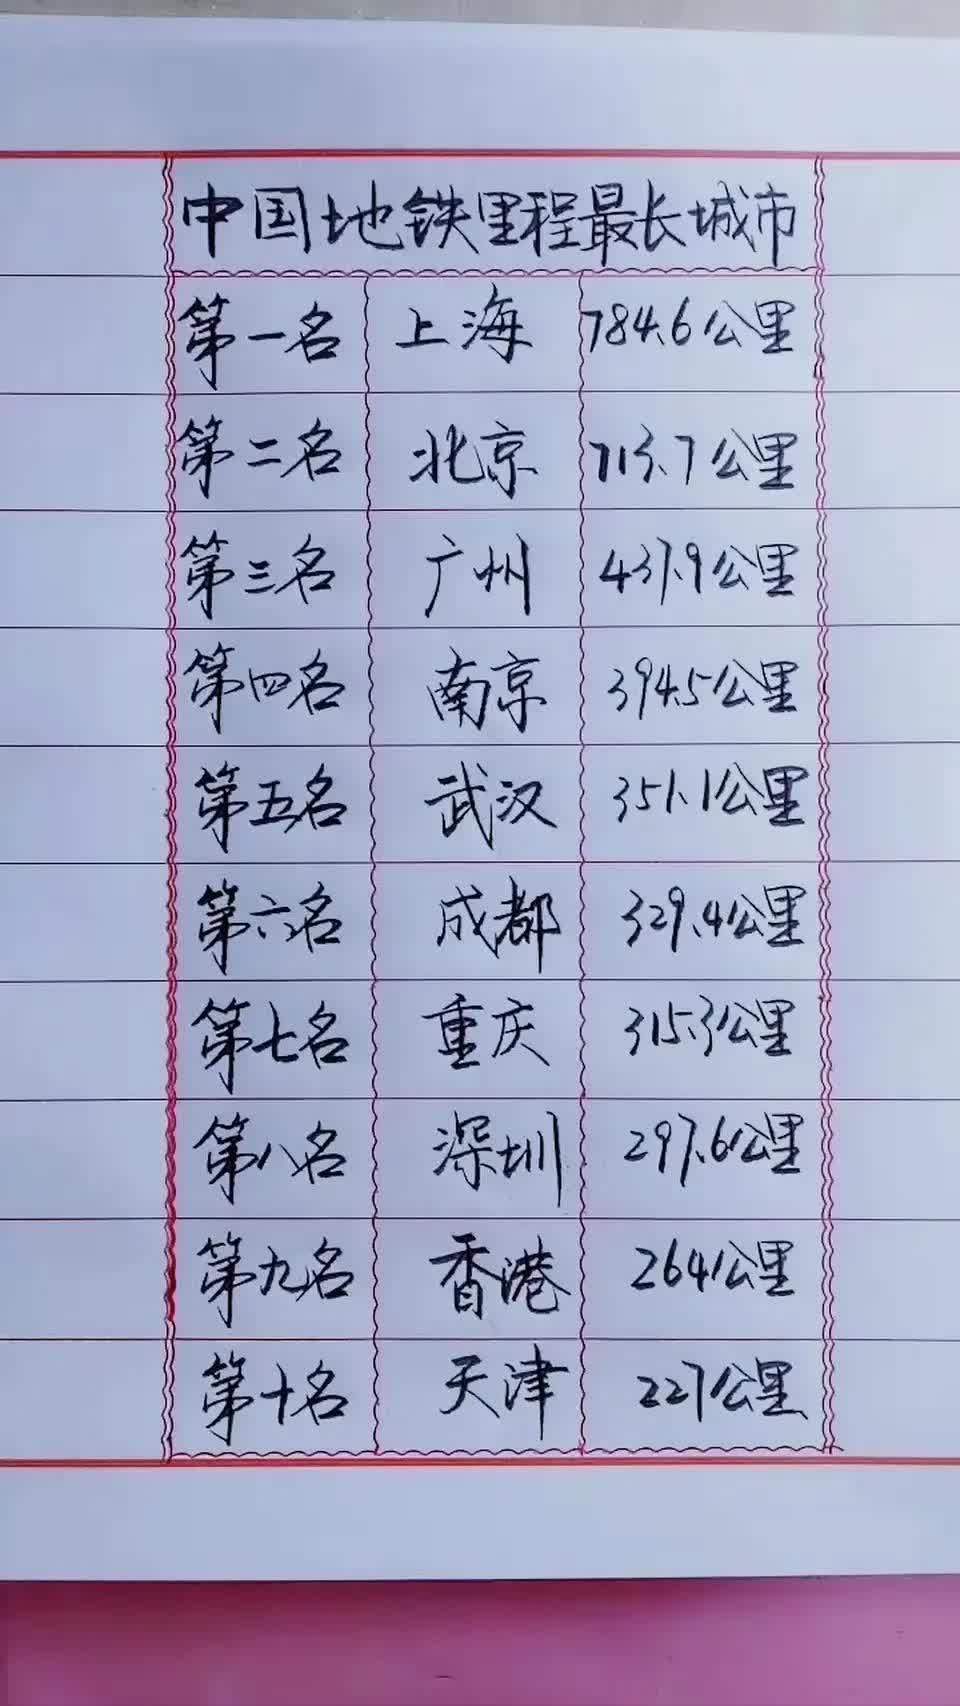 中国地铁里程最长城市
第一名 上海 784.6公里
第二名 北京 713.7公里
第三名 广州 437.9公里
第四名 南京 394.5公里
第五名 武汉 351.1公里
第六名 成都 329.4公里
第七名 重庆 315.3公里
第八名 深圳 297.6公里
第九名 香港 264公里
第十名 天津 227公里